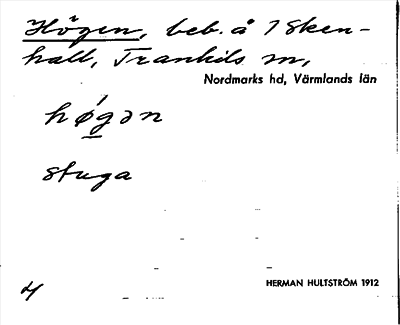 Högen, beb. å 1 Sken-
hall, Trankils sn,
Nordmarks hd, Värmlands län
hǿ̱gən
stuga
HERMAN HULTSTRÖM 1912